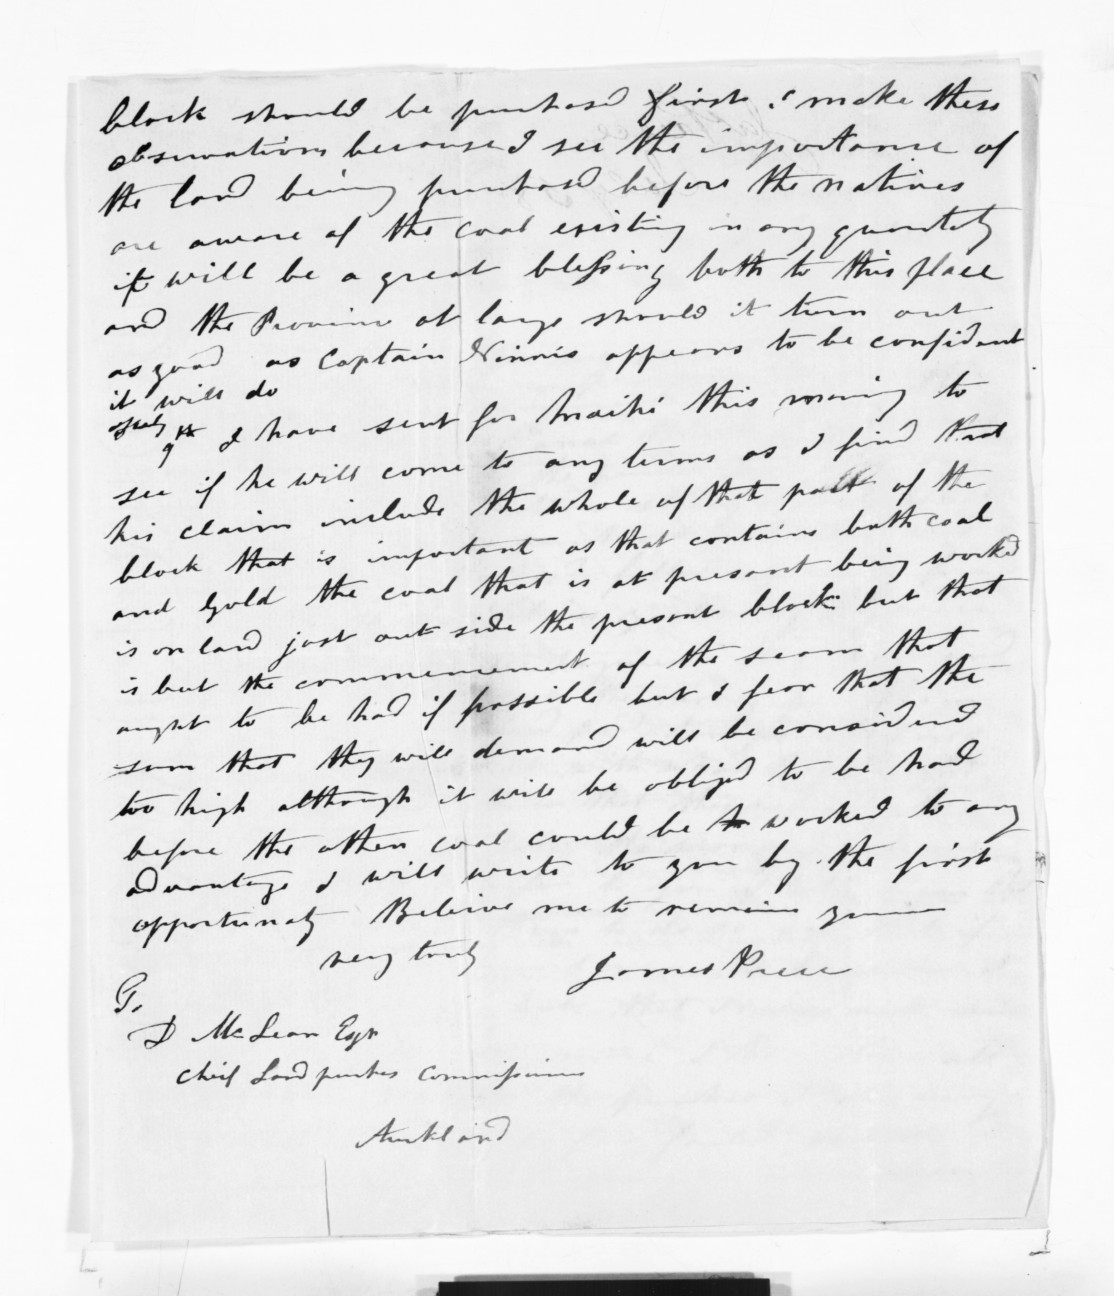 block should be purchasd first. I make these
observations because I see the importance of
the land being purchasd before the natives
are aware of the coal existing in any quantity
it will be a great blessing both to this place
and the Province at large should it turn out
as good as Captain Ninnis appears to be confidant
it will do
9th I have sent for this morning to
see if he will come to any terms as I find that
his claim include the whole of that part of the
block that is important as that contains both coal
and Gold the coal that is at present being worked
is on land just out side the present block but that
is but the commencement of the seam that
aught to be had if possible but I fear that the
sum that they will demand will be considered
too high although it will be obliged to be had
before the other coal could be worked to any
advantage I will write to you by the first
opportunaty Beleive me to remain yours
very truly James Preece
D McLean Esqr
Cheif Land purches Commissioner
Auckland